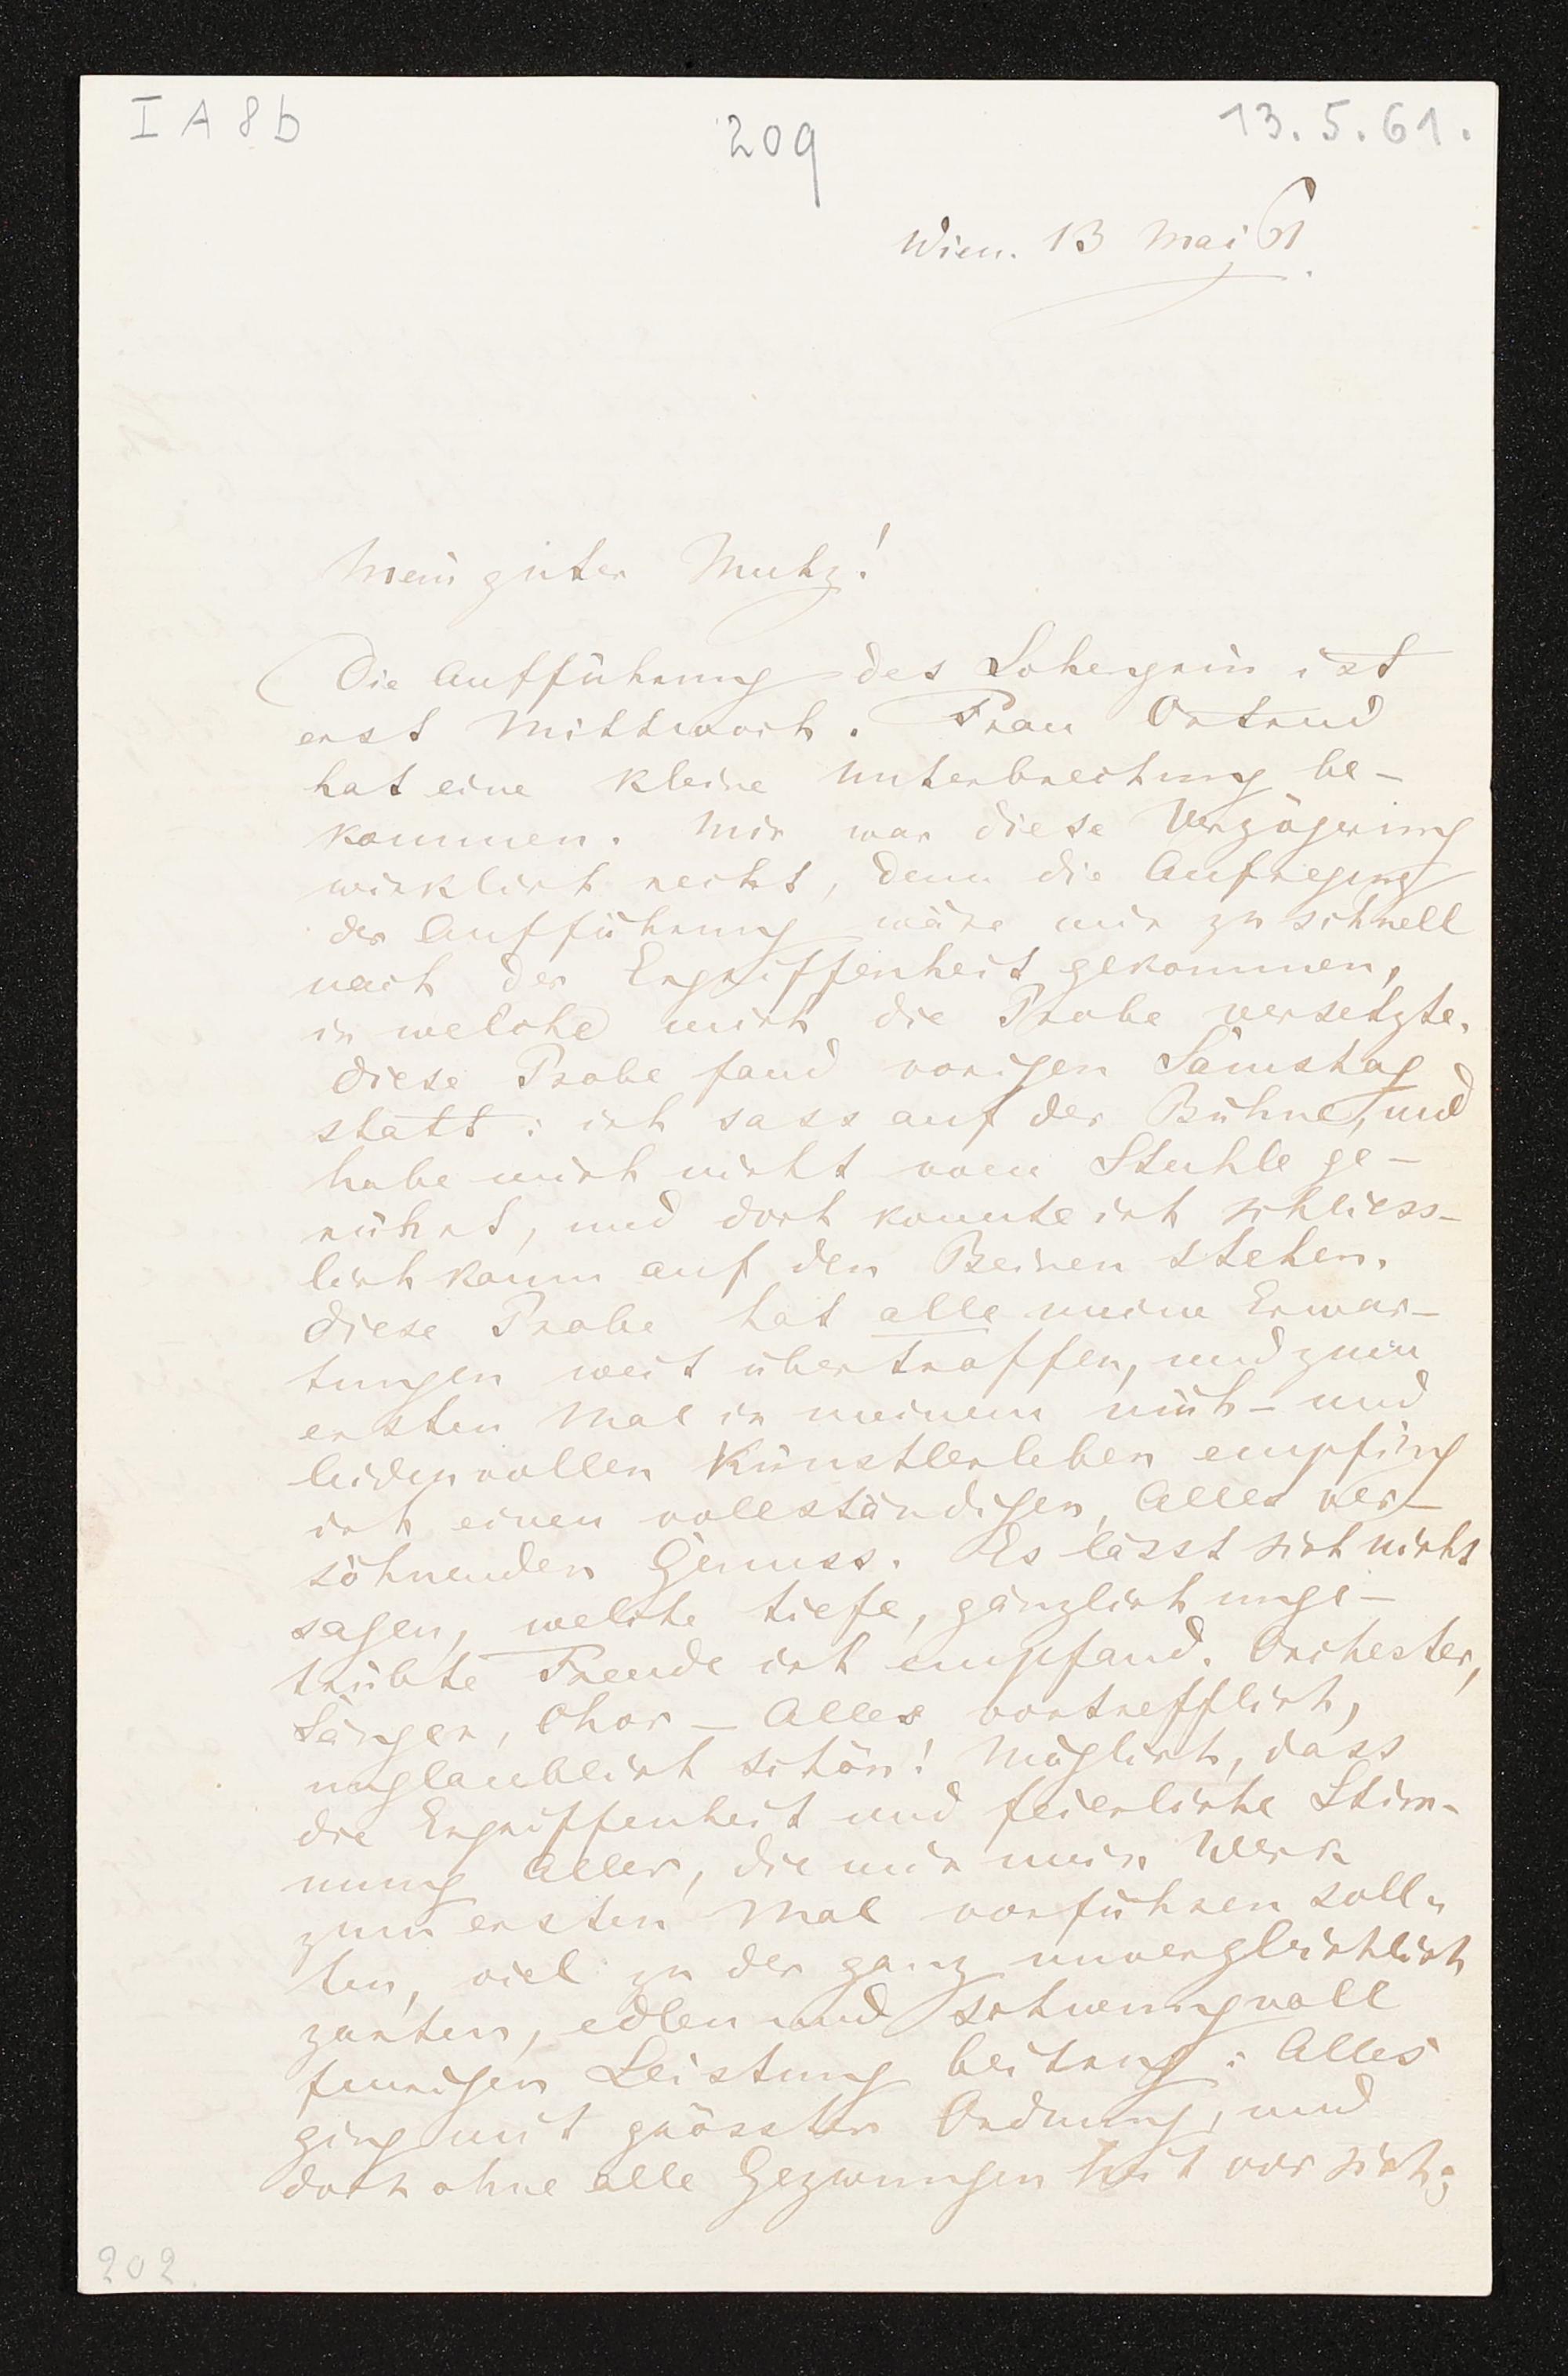 I A 8 b
209
13. 5. 61.
Wien. 13 Mai 61.
Mein guter Mutz!
Die Aufführung des Lohengrin ist
erst Mittwoch. Frau Ortrud
hat eine kleine Unterbrechung be-
kommen. Mir war diese Verzögerung
wirklich recht, denn die Aufregung
der Aufführung wäre mir zu schnell
nach der Ergriffenheit gekommen,
in welche mich die Probe versetzte.
Diese Probe fand vorigen Samstag
statt: ich sass auf der Bühne, und
habe mich nicht vom Stuhle ge-
rührt, und doch konnte ich schliess-
lich kaum auf den Beinen stehen.
Diese Probe hat alle meine Erwar-
tungen weit übertroffen, und zum
ersten Mal in meinem müh- und
leidenvollen Künstlerleben empfing
ich einen vollständigen, Alles ver-
söhnenden Genuss. Es lässt sich nicht
sagen, welche tiefe, gänzlich unge-
trübte Freude ich empfand. Orchester,
Sänger, Chor — Alles vortrefflich,
unglaublich schön! Möglich, dass
die Ergriffenheit und feierliche Stim-
mung Aller, die mir mein Werk
zum ersten Mal vorführen soll-
ten, viel zu der ganz unvergleichlich
zarten, edlen und schwungvoll
feurigen Leistung beitrug: Alles
ging mit grösster Ordnung, und
doch ohne alle Gezwungenheit vor sich;
202.